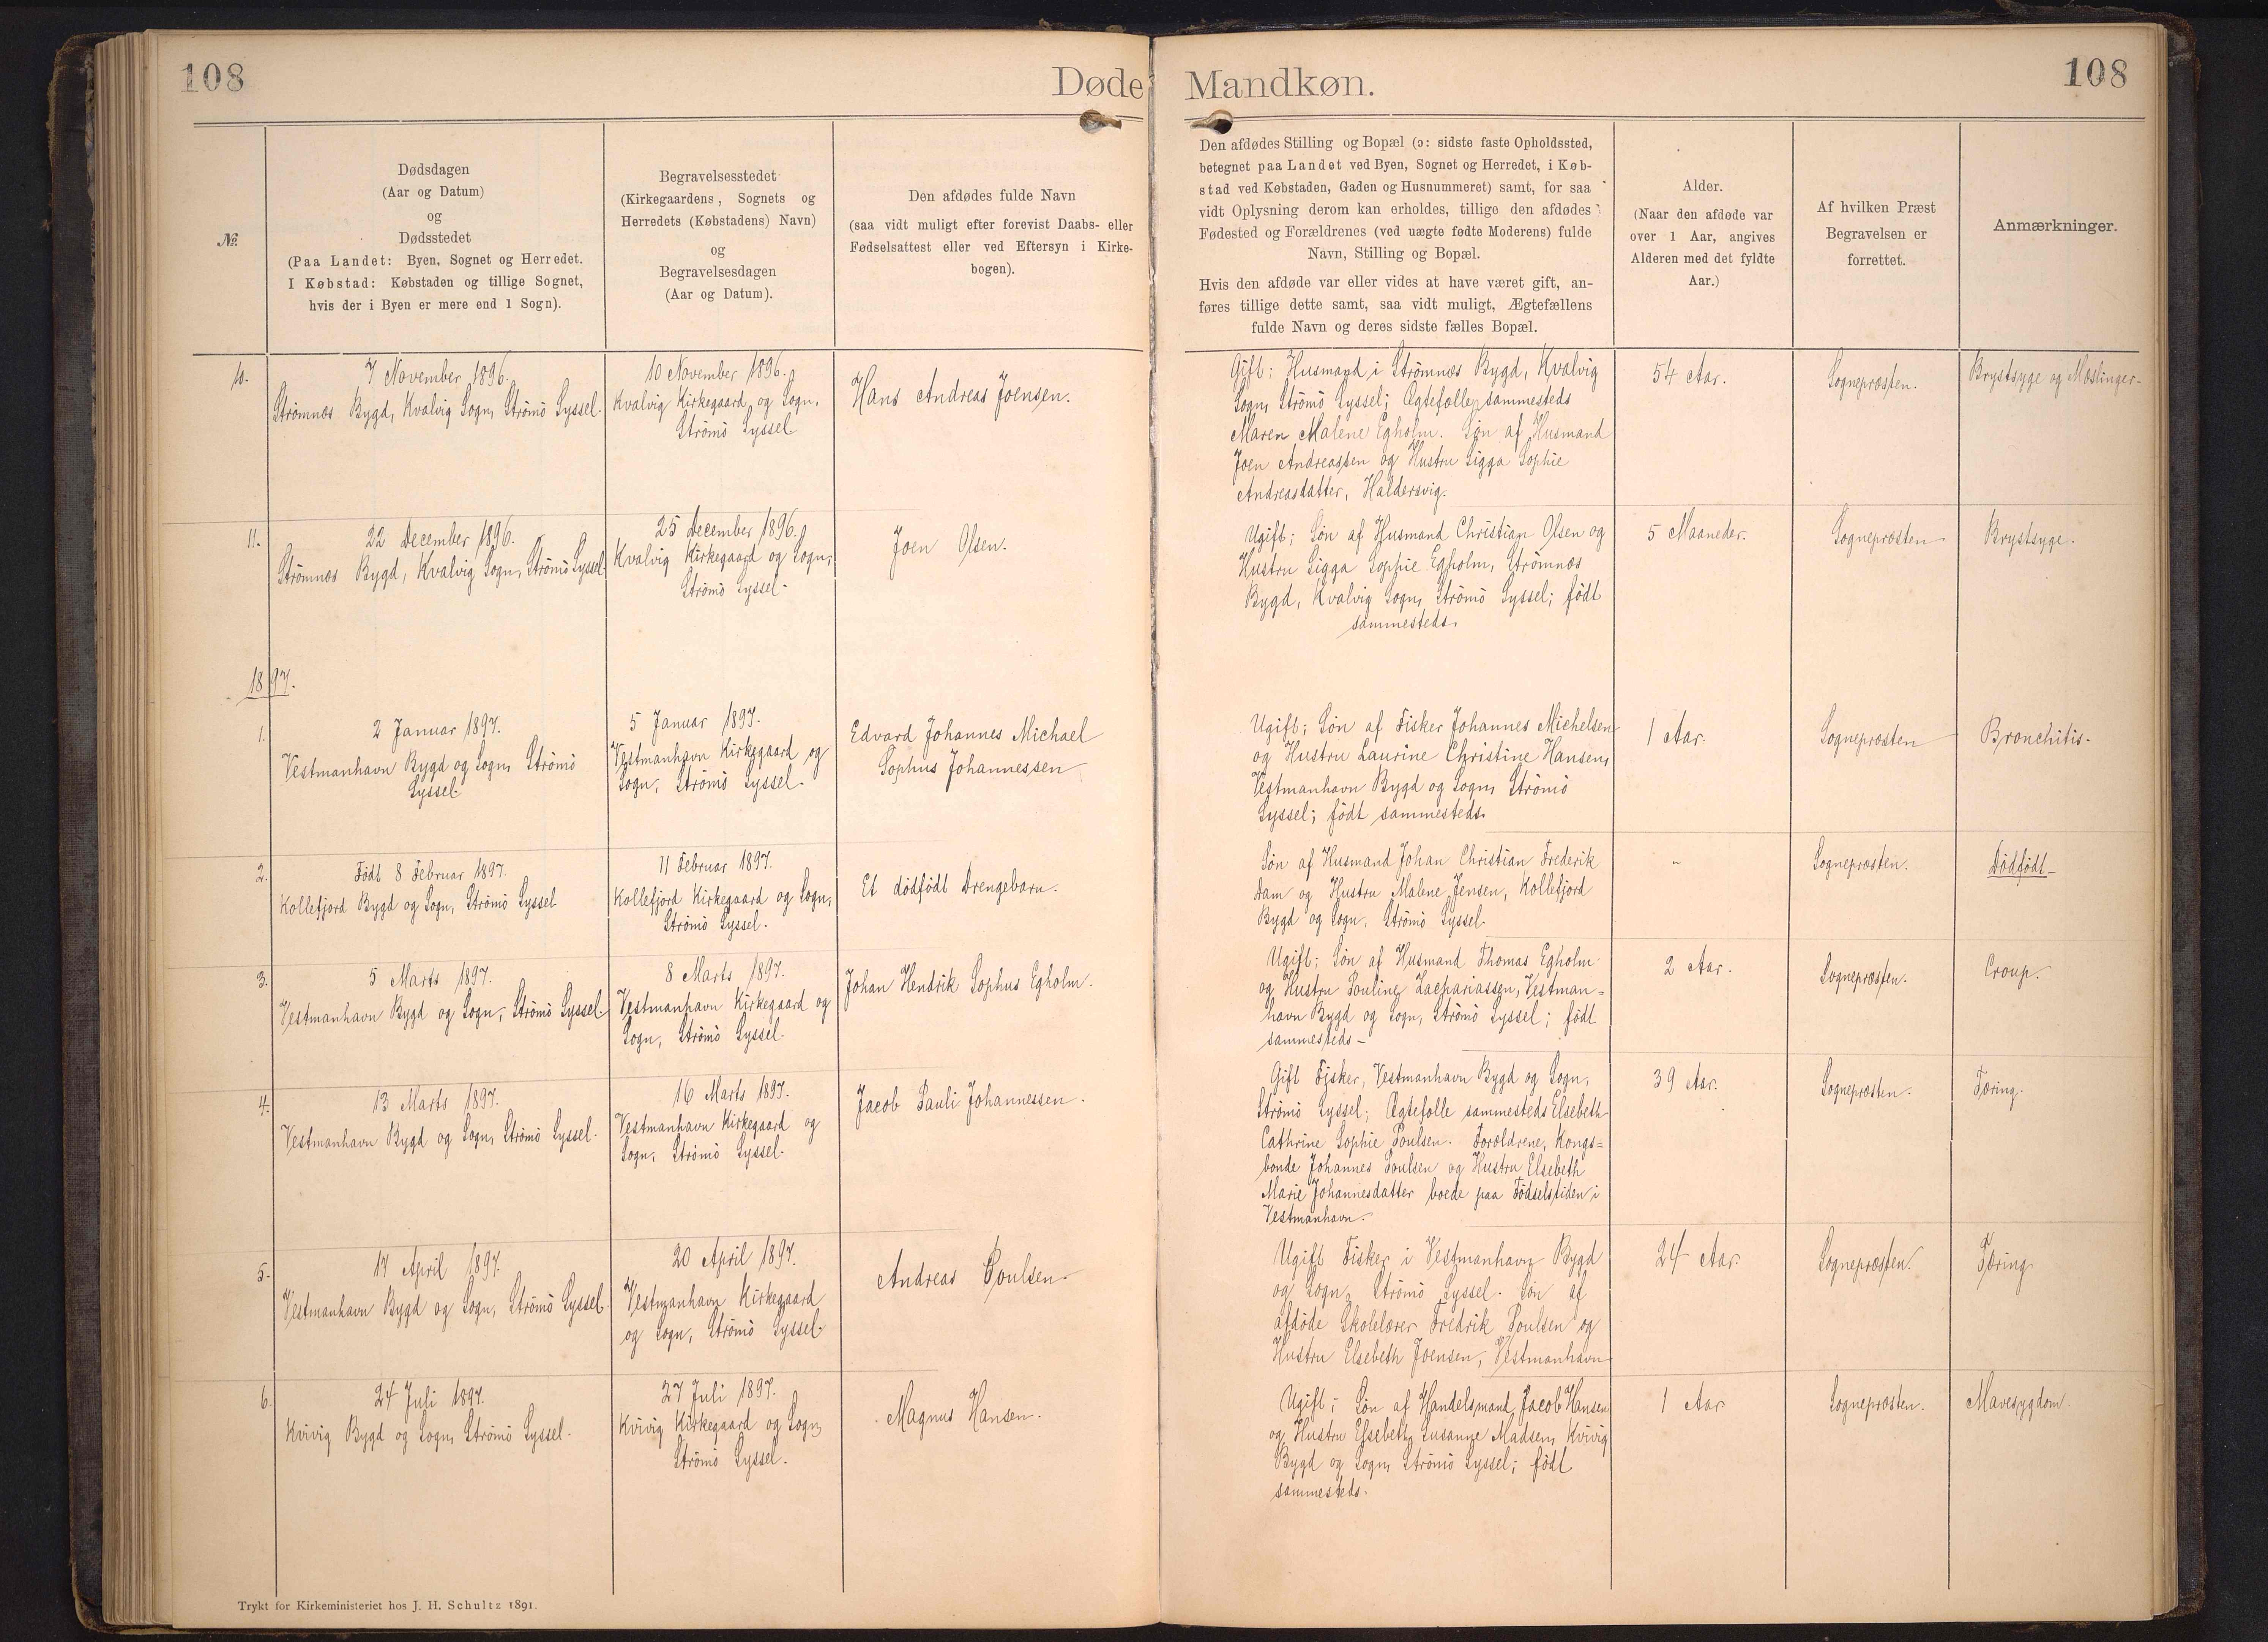 108
Døde
Mandkøn.
108
№
Dødsdagen
(Aar og Datum)
og
Dødsstedet
(Paa Landet: Byen, Sognet og Herredet.
I Købstad: Købstaden og tillige Sognet,
hvis der i Byen er mere end 1 Sogn).
Begravelsesstedet
(Kirkegaardens, Sognets og
Herredets (Købstadens) Navn)
og
Begravelsesdagen
(Aar og Datum).
Den afdødes fulde Navn
(saa vidt muligt efter forevist Daabs- eller
Fødselsattest eller ved Eftersyn i Kirke-
bogen).
Den afdødes Stilling og Bopæl (ɔ: sidste faste Opholdssted,
betegnet paa Landet ved Byen, Sognet og Herredet, i Køb-
stad ved Købstaden, Gaden og Husnummeret) samt, for saa
vidt Oplysning derom kan erholdes, tillige den afdødes
Fødested og Forældrenes (ved uægte fødte Moderens) fulde
Navn, Stilling og Bopæl.
Hvis den afdøde var eller vides at have været gift, an-
føres tillige dette samt, saa vidt muligt, Ægtefællens
fulde Navn og deres sidste fælles Bopæl.
Alder.
(Naar den afdøde var
over 1 Aar, angives
Alderen med det fyldte
Aar.)
Af hvilken Præst
Begravelsen er
forrettet.
Anmærkninger.
10.
7 November 1896.
Strømnæs Bygd, Kvalvig Sogn, Strømö Syssel.
10 November 1896.
Kvalvig Kirkegaard og Sogn,
Strömö Syssel
Hans Andreas Joensen.
Gift: Husmand i Strømnæs Bygd, Kvalvig
Sogn, Strömö Syssel; Ægtefælle sammesteds
Maren Malene Egholm. Søn af Husmand
Joen Andreassen og Hustru Sigga Sophie
Andreasdatter, Haldersvig.
54 Aar.
Sognepræsten.
Brystsyge og Mæslinger.
11.
22 December 1896.
Strömnæs Bygd, Kvalvig Sogn, Strömö Syssel
25 December 1896.
Kvalvig Kirkegaard og Sogn,
Strömö Syssel.
Joen Olsen.
Ugift; Søn af Husmand Christian Olsen og
Hustru Sigga Sophie Egholm, Strömnæs
Bygd, Kvalvig Sogn, Strömö Syssel; födt
sammesteds.
5 Maaneder.
Sognepræsten
Brystsyge.
1897.
1.
2 Januar 1897.
Vestmanhavn Bygd og Sogn, Strömö
Syssel
5 Januar 1897.
Vestmanhavn Kirkegaard og
Sogn, Strömö Syssel.
Edvard Johannes Michael
Sophus Johannessen
Ugift; Søn af Fisker Johannes Michelsen
og Hustru Laurine Christine Hansen,
Vestmanhavn Bygd og Sogn, Strömö
Syssel; födt sammesteds.
1 Aar.
Sognepræsten
Bronchitis.
2.
Födt 8 Februar 1897.
Kollefjord Bygd og Sogn, Strömö Syssel
11 Februar 1897.
Kollefjord Kirkegaard og Sogn,
Strömö Syssel.
Et dödfödt Drengebarn.
Søn af Husmand Johan Christian Frederik
Dam og Hustru Malene Jensen, Kollefjord
Bygd og Sogn, Strömö Syssel.
"
Sognepræsten.
Dödfödt
3.
5 Marts 1897.
Vestmanhavn Bygd og Sogn, Strömö Syssel.
8 Marts 1897.
Vestmanhavn Kirkegaard og
Sogn, Strömö Syssel.
Johan Hendrik Sophus Egholm.
Ugift; Søn af Husmand Thomas Egholm
og Hustru Pouline Zachariassen, Vestman=
havn Bygd og Sogn, Strömö Syssel; födt
sammesteds
2 Aar.
Sognepræsten.
Croup.
4.
13 Marts 1897.
Vestmanhavn Bygd og Sogn, Strömö Syssel.
16 Marts 1897.
Vestmanhavn Kirkegaard og
Sogn, Strömö Syssel.
Jacob Pauli Johannessen.
Gift Fisker, Vestmanhavn Bygd og Sogn,
Strömö Syssel; Ægtefælle sammesteds Elsebeth
Cathrine Sophie Poulsen. Forældrene, Kongs=
bonde Johannes Poulsen og Hustru Elsebeth
Marie Johannesdatter boede paa Födselstiden i
Vestmanhavn.
39 Aar.
Sognepræsten.
Tæring.
5.
17 April 1897.
Vestmanhavn Bygd og Sogn, Strömö Syssel.
20 April 1897.
Vestmanhavn Kirkegaard
og Sogn, Strömö Syssel.
Andreas Poulsen.
Ugift Fisker i Vestmanhavn Bygd
og Sogn, Strömö Syssel. Søn af
afdöde Skolelærer Fredrik Poulsen og
Hustru Elsebeth Joensen, Vestmanhavn
24 Aar.
Sognepræsten.
Tæring
6.
24 Juli 1897.
Kvivig Bygd og Sogn, Strömö Syssel.
27 Juli 1897.
Kvivig Kirkegaard og Sogn,
Strömö Syssel.
Magnus Hansen.
Ugift; Søn af Handelsmand Jacob Hansen
og Hustru Elsebeth Susanne Madsen, Kvivig
Bygd og Sogn, Strömö Syssel; födt
sammesteds.
1 Aar
Sognepræsten.
Mavesygdom.
Trykt for Kirkeministeriet hos J. H. Schultz 1891.